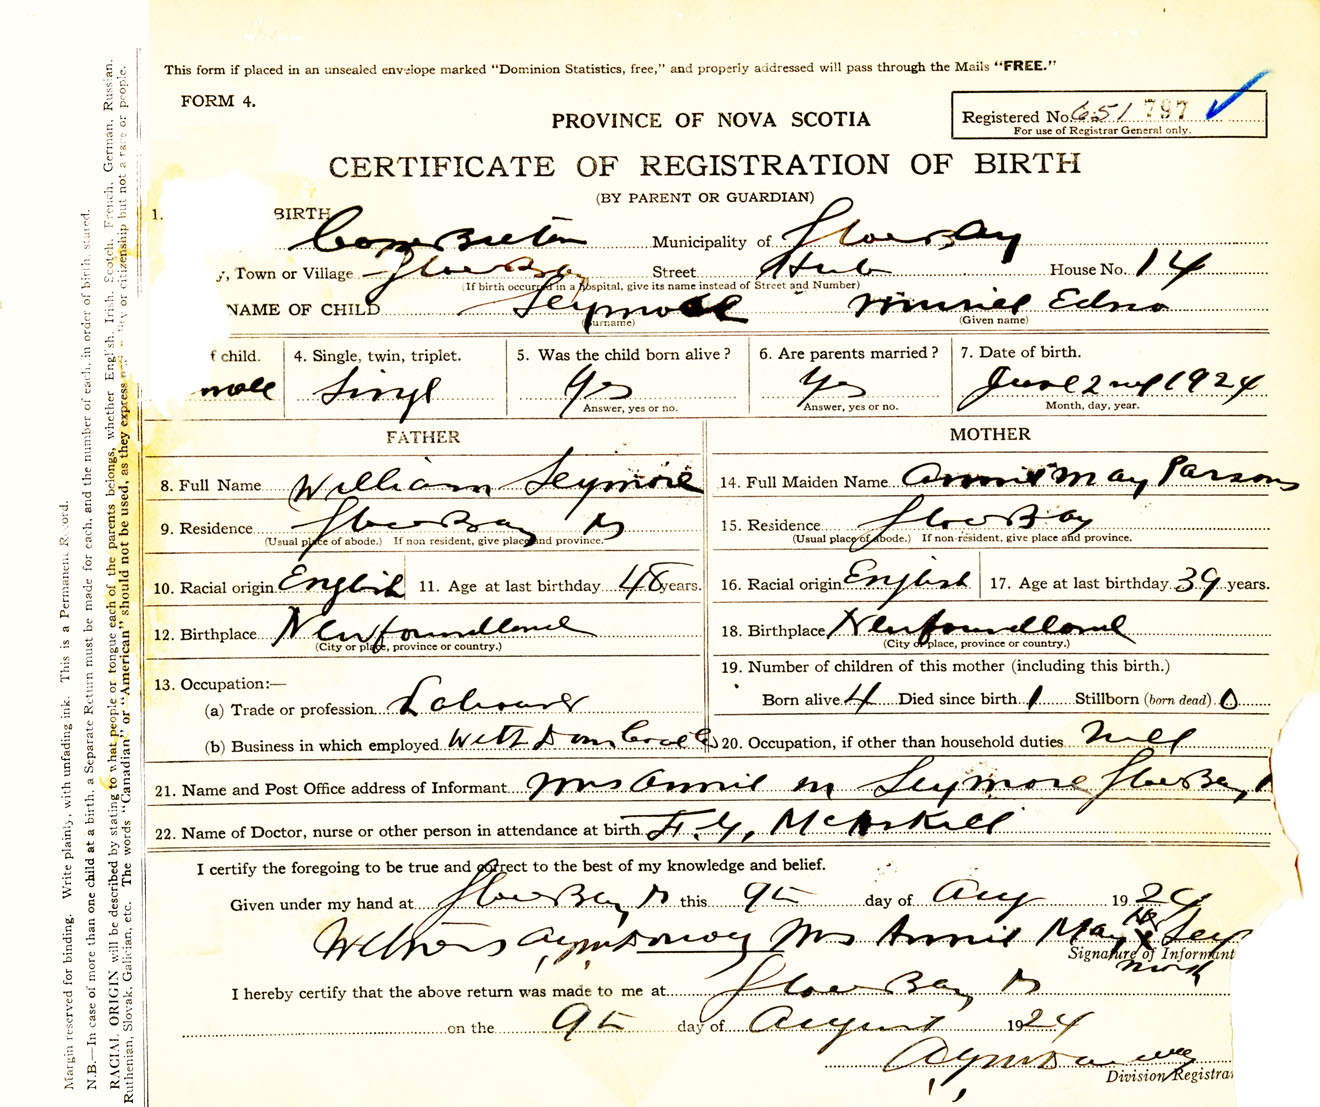 This form if placed in an unsealed envelope marked "Dominion Statistics, free," and properly addressed will pass through the Mails "FREE."
FORM 4.
Registered No. 651 797
For use of Registrar General only.
PROVINCE OF NOVA SCOTIA
CERTIFICATE OF REGISTRATION OF BIRTH
(BY PARENT OR GUARDIAN)
1. BIRTH
Cape Breton Municipality of Glace Bay
y, Town or Village Glace Bay Street Hub House No. 14
(If birth occurred in a hospital, give its name instead of Street and Number)
NAME OF CHILD Seymore Muriel Edna
(Surname) (Given name)
f child. 4. Single, twin, triplet. 5. Was the child born alive? 6. Are parents married? 7. Date of birth.
male Singl Yes Yes June 2nd 1924
Answer, yes or no. Answer, yes or no. Month, day, year.
FATHER MOTHER
8. Full Name William Seymore 14. Full Maiden Name Annie May Parsons
9. Residence Glace Bay 15. Residence Glace Bay
(Usual place of abode.) If non resident, give place and province. (Usual place of abode.) If non-resident, give place and province.
10. Racial origin English 11. Age at last birthday 48 years. 16. Racial origin English 17. Age at last birthday 39 years.
12. Birthplace Newfoundland 18. Birthplace Newfoundland
(City or place, province or country.) (City or place, province or country.)
13. Occupation:— 19. Number of children of this mother (including this birth.)
(a) Trade or profession Labourer Born alive 4 Died since birth 1 Stillborn (born dead) 0
(b) Business in which employed With Dom Coal Co 20. Occupation, if other than household duties Nill
21. Name and Post Office address of Informant Mrs Annie M Seymore Glace Bay,
22. Name of Doctor, nurse or other person in attendance at birth McAskill
I certify the foregoing to be true and correct to the best of my knowledge and belief.
Given under my hand at Glace Bay this 9th day of Aug 1924
Witness Mrs Annie May X Sey
Signature of Informant
mark
I hereby certify that the above return was made to me at Glace Bay
on the 9th day of August 1924
Division Registra
Margin reserved for binding. Write plainly, with unfading ink. This is a Permanent Record.
N.B.—In case of more than one child at a birth, a Separate Return must be made for each, and the number of each, in order of birth, stated.
RACIAL ORIGIN will be described by stating to what people or tongue each of the parents belongs, whether English, Irish, Scotch, French, German, Russian,
Ruthenian, Slovak, Galician, etc. The words "Canadian" or "American" should not be used, as they express or citizenship but not a race or people.